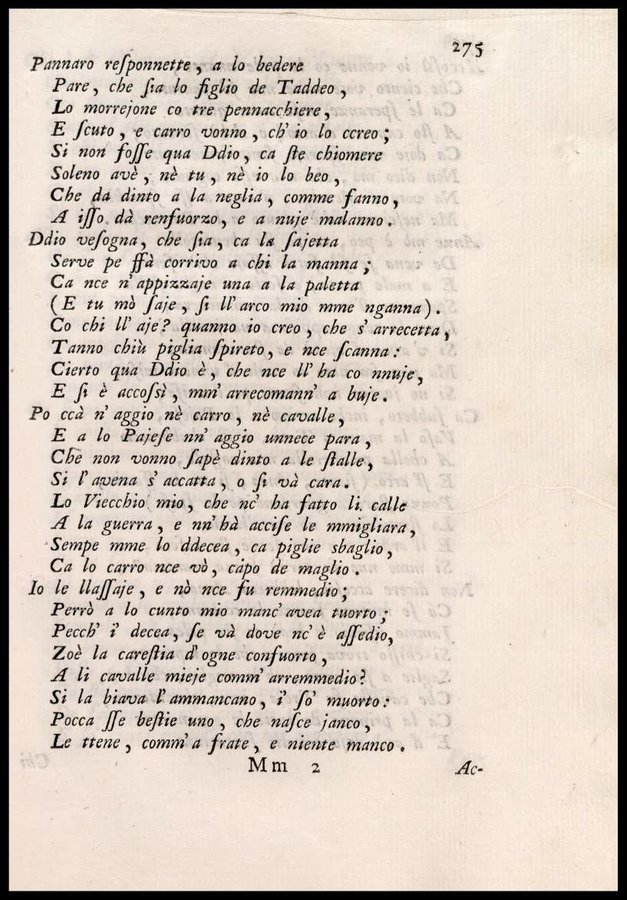 275
Pannaro reſponnette, a lo bedere
Pare, che ſia lo figlio de Taddeo,
Lo morrejone co tre pennacchiere,
E ſcuto, e carro vonno, ch' io lo ccreo;
Si non foſſe qua Ddio, ca ſte chiomere
Soleno avè, nè tu, nè io lo beo,
Che da dinto a la neglia, comme fanno,
A iſſo dà renfuorzo, e a nuje malanno.
Ddio veſogna, che ſia, ca la ſajetta
Serve pe ffà corrivo a chi la manna;
Ca nce n' appizzaje una a la paletta
(E tu mò ſaje, ſi ll' arco mio mme nganna).
Co chi ll' aje? quanno io creo, che s' arrecetta,
Tanno chiù piglia ſpireto, e nce ſcanna:
Cierto qua Ddio è, che nce ll' ha co nnuje,
E ſi è accoſsì, mm' arrecomann' a buje.
Po ccà n' aggio nè carro, nè cavalle,
E a lo Pajeſe nn' aggio unnece para,
Che non vonno ſapè dinto a le ſtalle,
Si l' avena s' accatta, o ſi và cara.
Lo Viecchio mio, che nc' ha fatto li calle
A la guerra, e nn' hà acciſe le mmigliara,
Sempe mme lo ddecea, ca piglie sbaglio,
Ca lo carro nce vò, capo de maglio.
Io le llaſſaje, e nò nce fu remmedio;
Perrò a lo cunto mio manc' avea tuorto;
Pecch' i' decea, ſe và dove nc' è aſſedio,
Zoè la careſtia d' ogne confuorto,
A li cavalle mieje comm' arremmedio?
Si la biava l' ammancano, i' ſo' muorto:
Pocca ſſe beſtie uno, che naſce janco,
Le ttene, comm' a frate, e niente manco.
Mm 2 Ac-